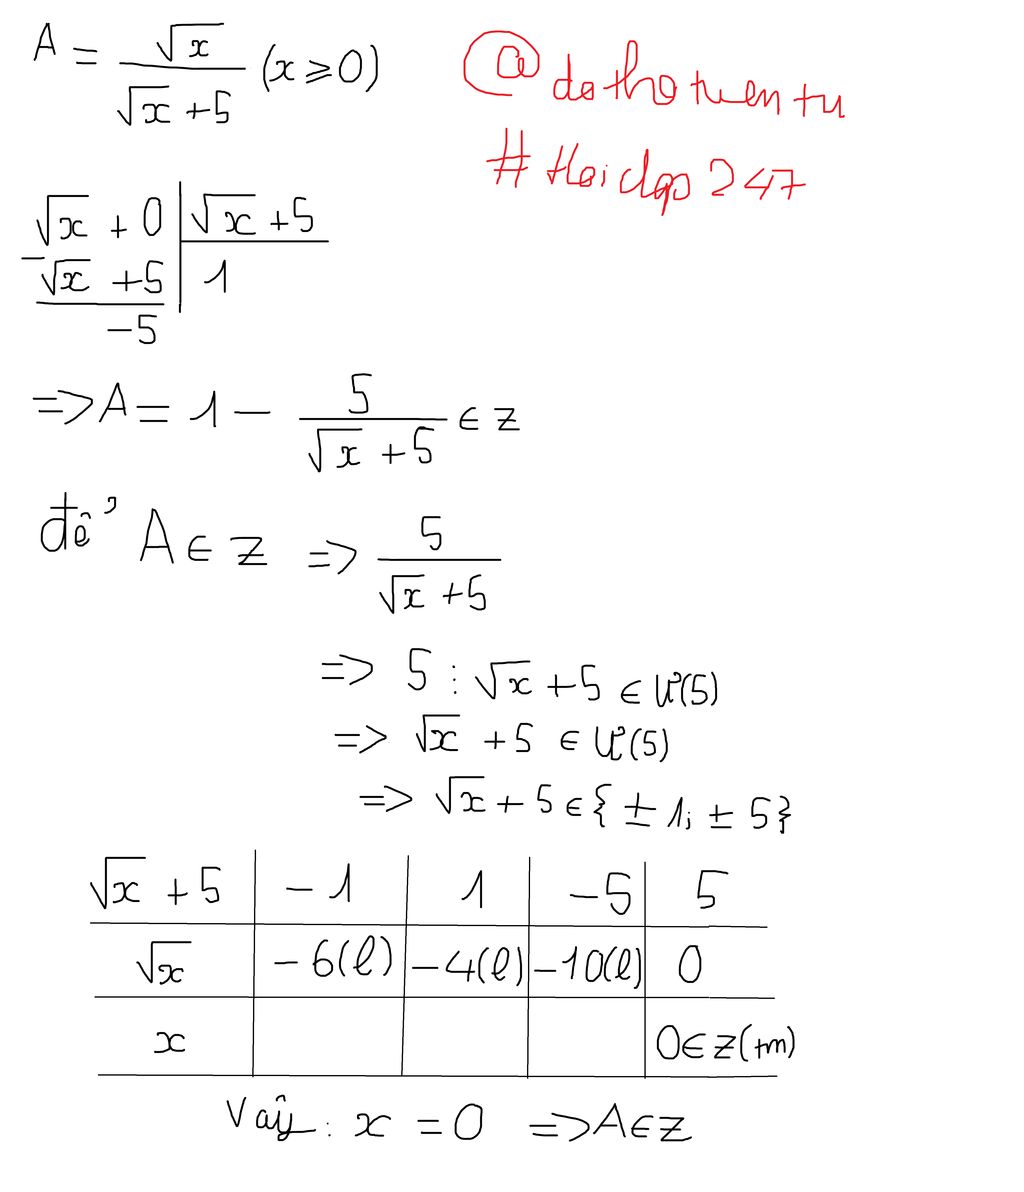 A = √x / (√x + 5) (x ⩾ 0)
@ dothotuentu
# Hoidap 247
√x + 0 | √x + 5
- √x + 5 | 1
-5
=> A = 1 - 5 / (√x + 5) ∈ Z
để A ∈ Z => 5 / (√x + 5)
=> 5 ⋮ √x + 5 ∈ Ư(5)
=> √x + 5 ∈ Ư(5)
=> √x + 5 ∈ { ± 1; ± 5}
√x + 5 | -1 | 1 | -5 | 5
√x | -6(l) | -4(l) | -10(l) | 0
x | | | | 0 ∈ Z (tm)
Vậy: x = 0 => A ∈ Z